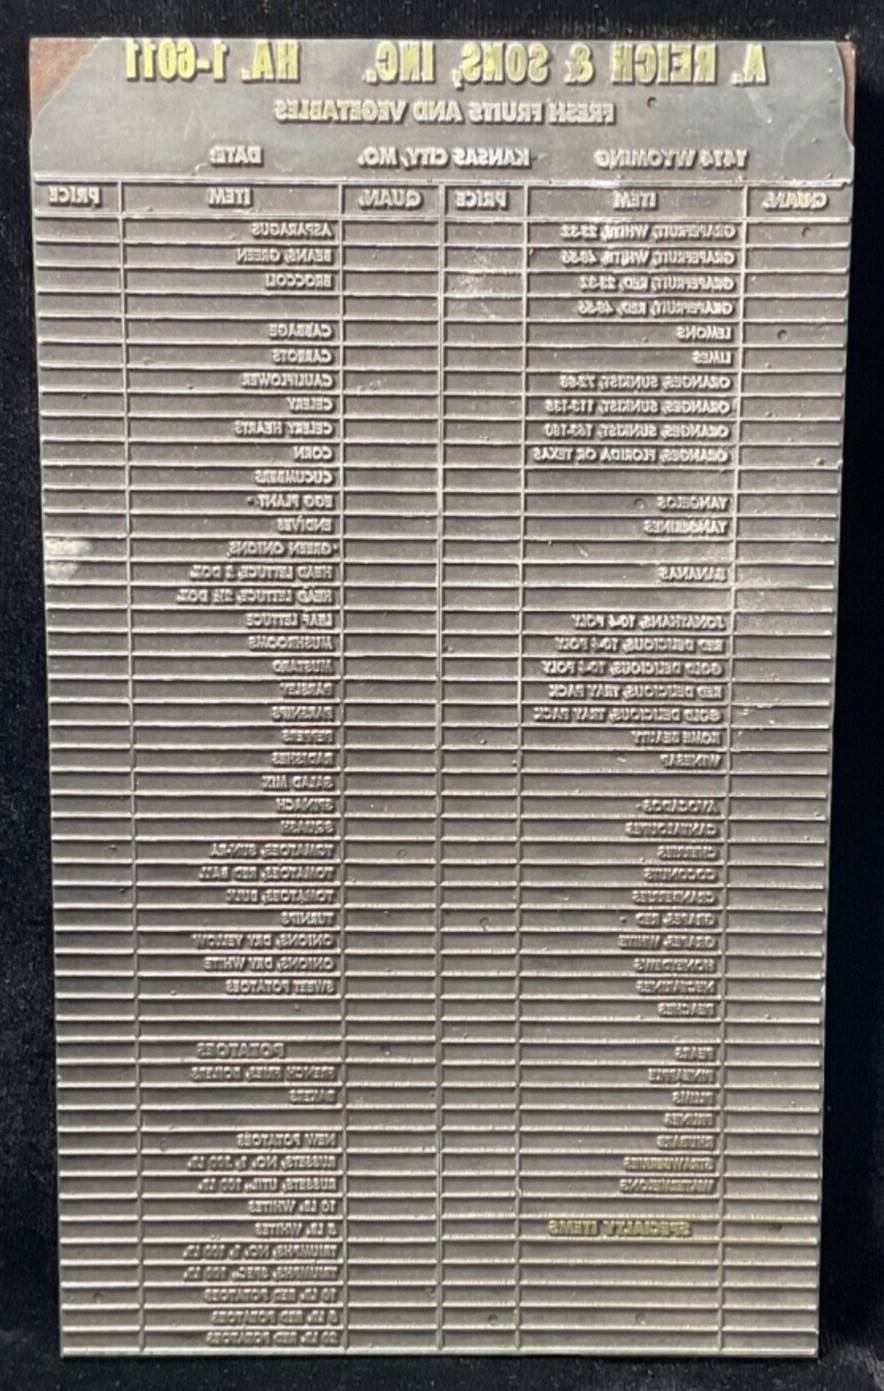 A. REICH & SONS, INC. HA. 1-6011
FRESH FRUITS AND VEGETABLES
1414 WYOMING KANSAS CITY, MO. DATE
QUAN. ITEM PRICE QUAN. ITEM PRICE
GRAPEFRUIT, WHITE, 23-32
GRAPEFRUIT, WHITE, 48-56
GRAPEFRUIT, RED, 23-32
GRAPEFRUIT, RED, 48-56
LEMONS
LIMES
ORANGES, SUNKIST, 72-88
ORANGES, SUNKIST, 113-138
ORANGES, SUNKIST, 163-180
ORANGES, FLORIDA OR TEXAS
TANGELOS
TANGERINES
BANANAS
JONATHANS, 10-4 POLY
RED DELICIOUS, 10-4 POLY
GOLD DELICIOUS, 10-4 POLY
RED DELICIOUS, TRAY PACK
GOLD DELICIOUS, TRAY PACK
ROME BEAUTY
WINESAP
AVOCADOS
CANTALOUPES
CHERRIES
COCONUTS
CRANBERRIES
GRAPES, RED
GRAPES, WHITE
HONEYDEWS
NECTARINES
PEACHES
PEARS
PINEAPPLE
PLUMS
PRUNES
RHUBARB
STRAWBERRIES
WATERMELONS
SPECIALTY ITEMS
ASPARAGUS
BEANS, GREEN
BROCCOLI
CABBAGE
CARROTS
CAULIFLOWER
CELERY
CELERY HEARTS
CORN
CUCUMBERS
EGG PLANT
ENDIVES
GREEN ONIONS
HEAD LETTUCE, 2 DOZ.
HEAD LETTUCE, 2½ DOZ.
LEAF LETTUCE
MUSHROOMS
MUSTARD
PARSLEY
PARSNIPS
PEPPERS
RADISHES
SALAD MIX
SPINACH
SQUASH
TOMATOES, SUN-RA
TOMATOES, RED BALL
TOMATOES, BULK
TURNIPS
ONIONS, DRY YELLOW
ONIONS, DRY WHITE
SWEET POTATOES
POTATOES
FRENCH FRIES, BOILERS
BAKERS
NEW POTATOES
RUSSETS, NO. 1, 100 LB.
RUSSETS, UTIL., 100 LB.
10 LB. WHITES
5 LB. WHITES
TRIUMPHS, NO. 1, 100 LB.
TRIUMPHS, SPEC., 100 LB.
10 LB. RED POTATOES
5 LB. RED POTATOES
20 LB. RED POTATOES